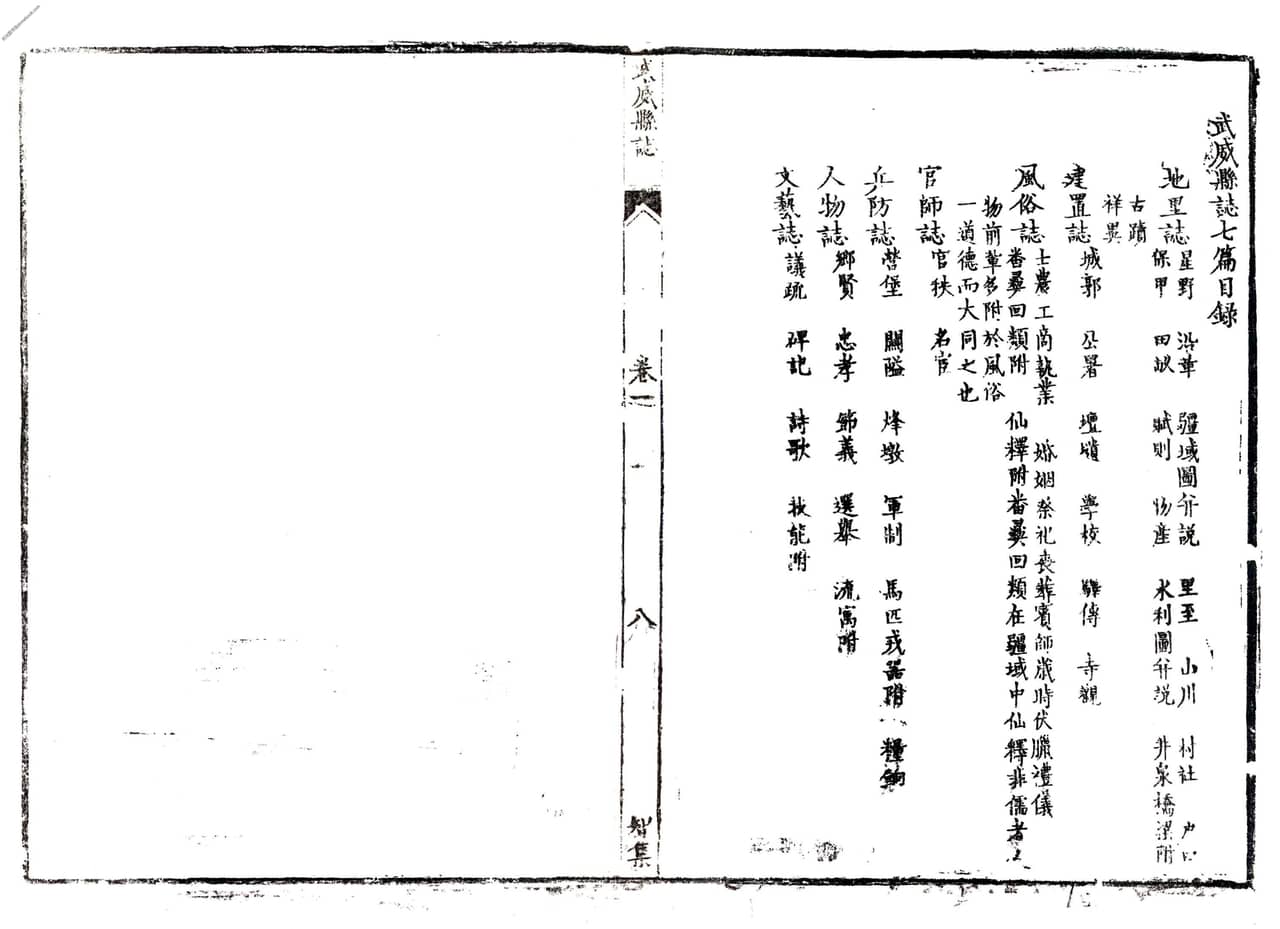 武威縣誌七篇目錄
地里誌 星野 沿革 疆域圖并說 里至 山川 村社 戶口
保甲 田畝 賦則 物產 水利圖并説 井泉橋梁附
古蹟
祥異
建置誌 城郭 公署 壇壝 學校 驛傳 寺觀
風俗誌 士農工商執業 婚姻祭祀喪葬賓師歲時伏臘禮儀
番彝回類附 仙釋附番彝回類在疆域中仙釋非儒者人
物前輩多附於風俗
一道德而大同之也
官師誌 官秩 名宦
兵防誌 營堡 關隘 烽墩 軍制 馬匹戎器附 糧餉
人物誌 鄉賢 忠孝 節義 選舉 流寓附
文藝誌 議疏 碑記 詩歌 技能附
武威縣誌 卷一 八 智集